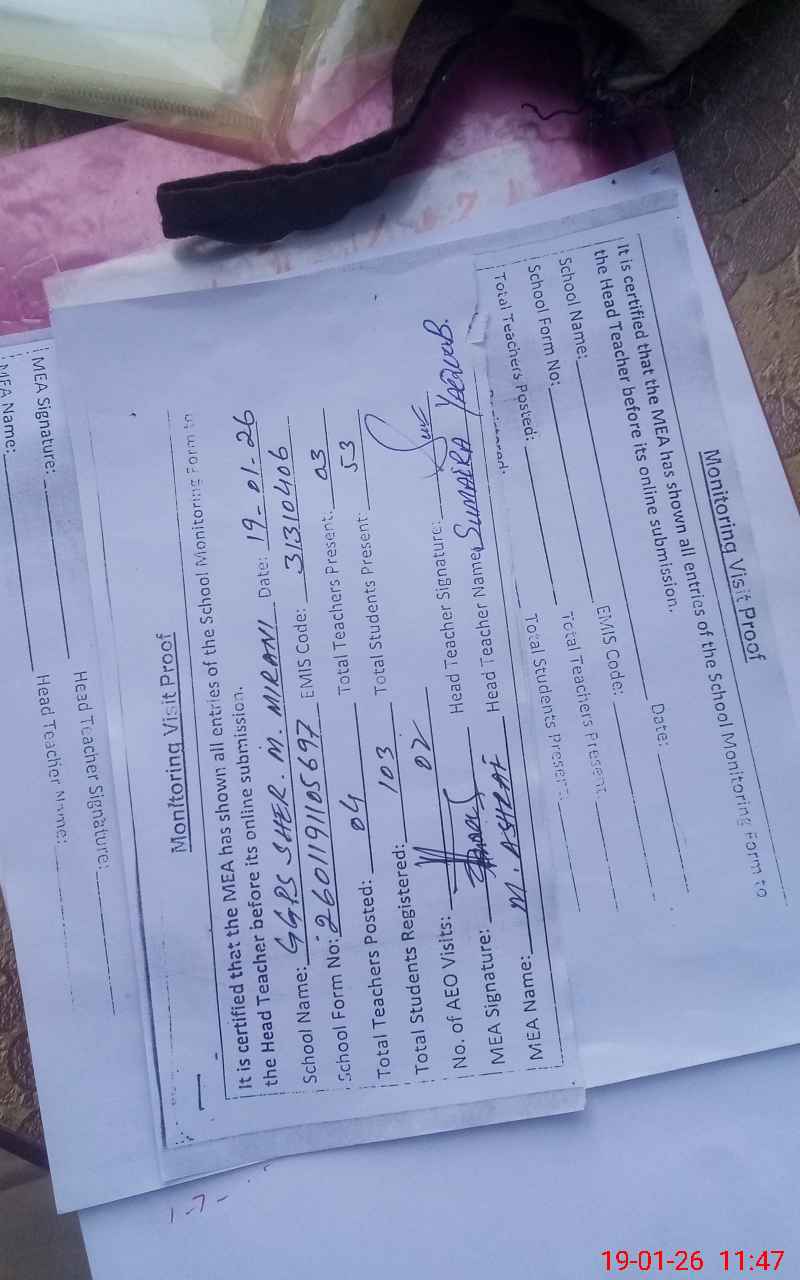 Monitoring Visit Proof
It is certified that the MEA has shown all entries of the School Monitoring Form to
the Head Teacher before its online submission.
Date: 19-01-26
School Name: GGPS SHER. M. MIRANI EMIS Code: 31310406
School Form No: 2601191105697 Total Teachers Present: 03
Total Teachers Posted: 04 Total Students Present: 53
Total Students Registered: 103
No. of AEO Visits: 02 Head Teacher Signature:
MEA Signature: Head Teacher Name: SUMAIRA YAQUOB.
MEA Name: M. ASHRAF
Monitoring Visit Proof
It is certified that the MEA has shown all entries of the School Monitoring Form to
the Head Teacher before its online submission.
Date:
School Name: EMIS Code:
School Form No: Total Teachers Present:
Total Teachers Posted: Total Students Present:
MEA Signature: Head Teacher Signature:
MEA Name: Head Teacher Name:
19-01-26 11:47